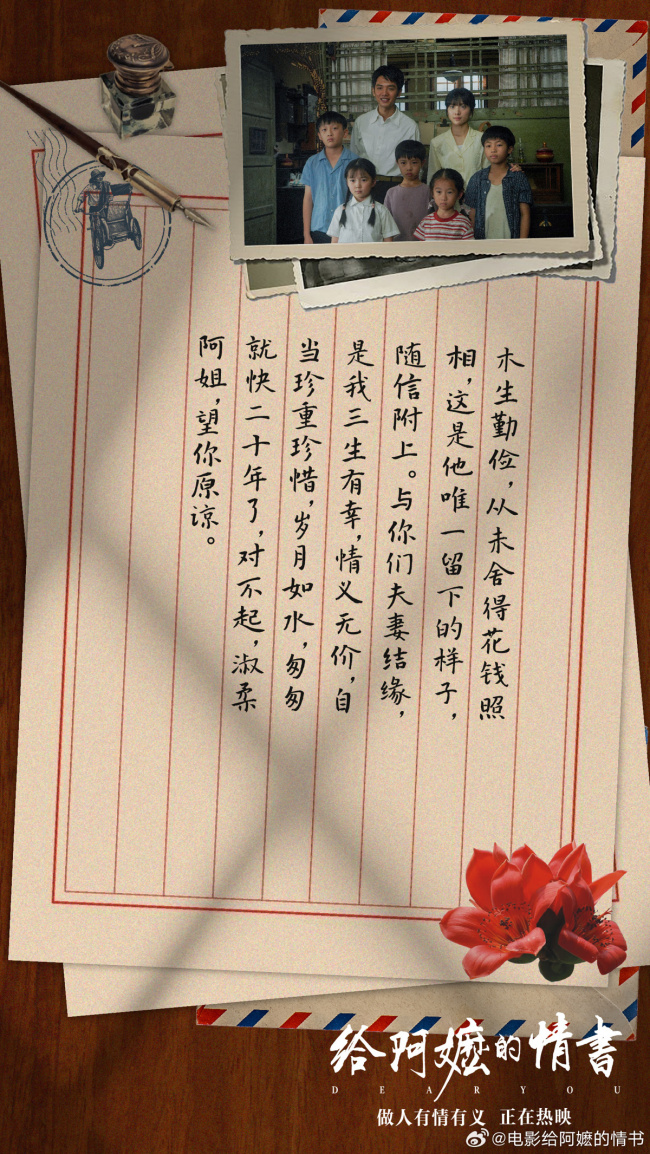 木生勤俭，从未舍得花钱照
相，这是他唯一留下的样子，
随信附上。与你们夫妻结缘，
是我三生有幸，情义无价，自
当珍重珍惜，岁月如水，匆匆
就快二十年了，对不起，淑柔
阿姐，望你原谅。
给阿嬷的情書
DEAR YOU
做人有情有义 正在热映
@电影给阿嬷的情书